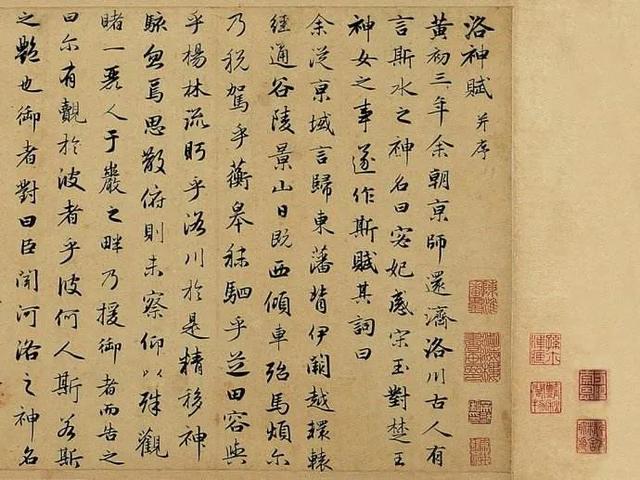 洛神賦 并序
黃初三年余朝京師還濟洛川古人有
言斯水之神名曰宓妃感宋玉對楚王
神女之事遂作斯賦其詞曰
余從京域言歸東藩背伊闕越轘轅
經通谷陵景山日既西傾車殆馬煩尓
乃税駕乎蘅皋秣駟乎芝田容與
乎楊林流眄乎洛川於是精移神
駭忽焉思散俯則未察仰以殊觀
睹一麗人于巖之畔乃援御者而告之
曰尓有覿於彼者乎彼何人斯若斯
之豔也御者對曰臣聞河洛之神名